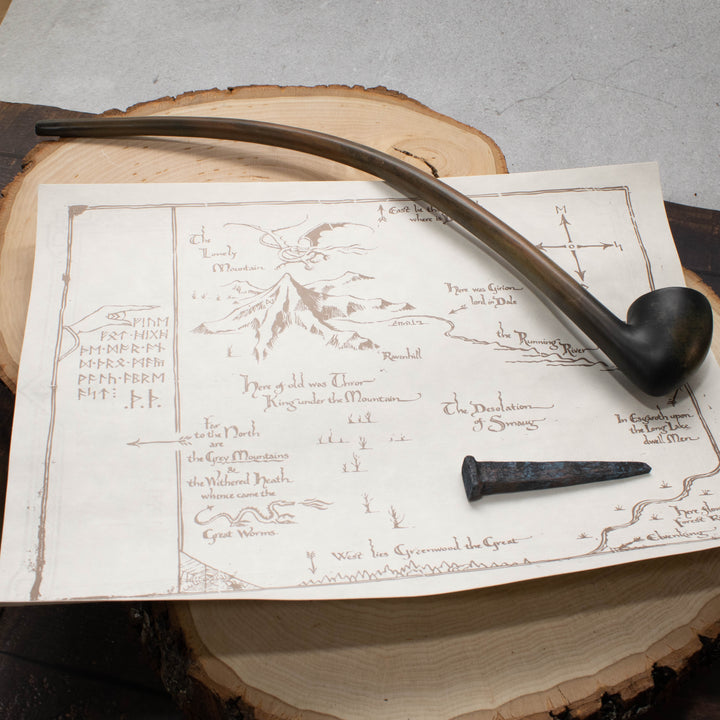 ᚠᛁᚢᛖ
ᚠᛟᛏ·ᚻᛁᚷᚻ
ᚦᛖ·ᛞᚩᚱ·ᚪᚾ
ᛞ·ᚦᚱᛟ·ᛗᚪᚣ
ᚹᚪᛚᚳ·ᚪᛒᚱᛖ
ᚪᛋᛏ:
.ᚦ.ᚦ.
The
Lonely
Mountain
East lie the
where is
E
Here was Girion
lord in Dale
Ravenhill
the Running
River
Here of old was Thror
King under the Mountain
The Desolation
of Smaug
In Esgaroth upon
the Long Lake
dwell Men
Far
to the North
are
the Grey Mountains
&
the Withered Heath
whence came the
Great Worms
West lies Greenwood the Great
Here
Forest R
Elvenking